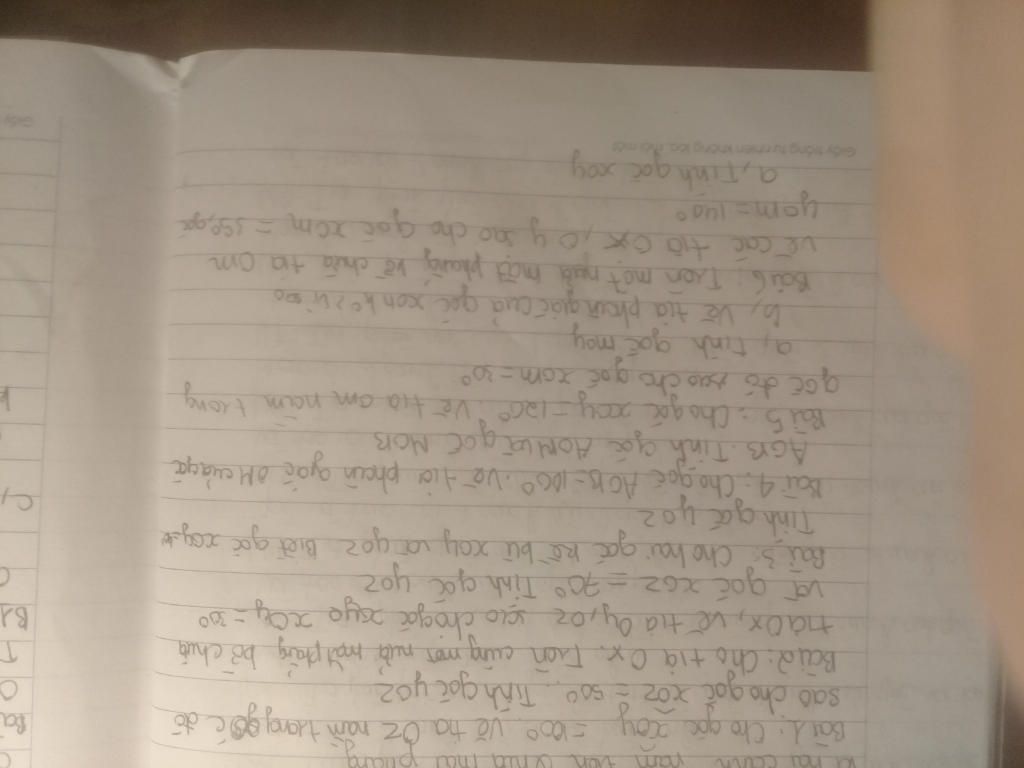 nằm trên
Bài 1: Cho góc xOy = 100° vẽ tia Oz nằm trong góc đó
sao cho góc xOz = 50°. Tính góc yOz
Bài 2: Cho tia Ox. Trên cùng một nửa mặt phẳng bờ chứa
tia Ox, vẽ tia Oy, Oz sao cho góc xOy = 30°
và góc xOz = 70° Tính góc yOz
Bài 3: Cho hai góc kề bù xoy và yoz Biết góc xoy
Tính góc yoz
Bài 4: Cho góc AOB = 100°. Vẽ tia phân giác OM của góc
AOB. Tính góc AOM và góc MOB
Bài 5: Cho góc xoy = 120°. Vẽ tia om nằm trong
góc đó sao cho góc xom = 30°
a, tính góc moy
b, Vẽ tia phân giác của góc
Bài 6: Trên một nửa mặt phẳng bờ chứa tia Om
vẽ các tia Ox, Oy sao cho góc xOm = góc
yom = 140°
a, Tính góc xoy